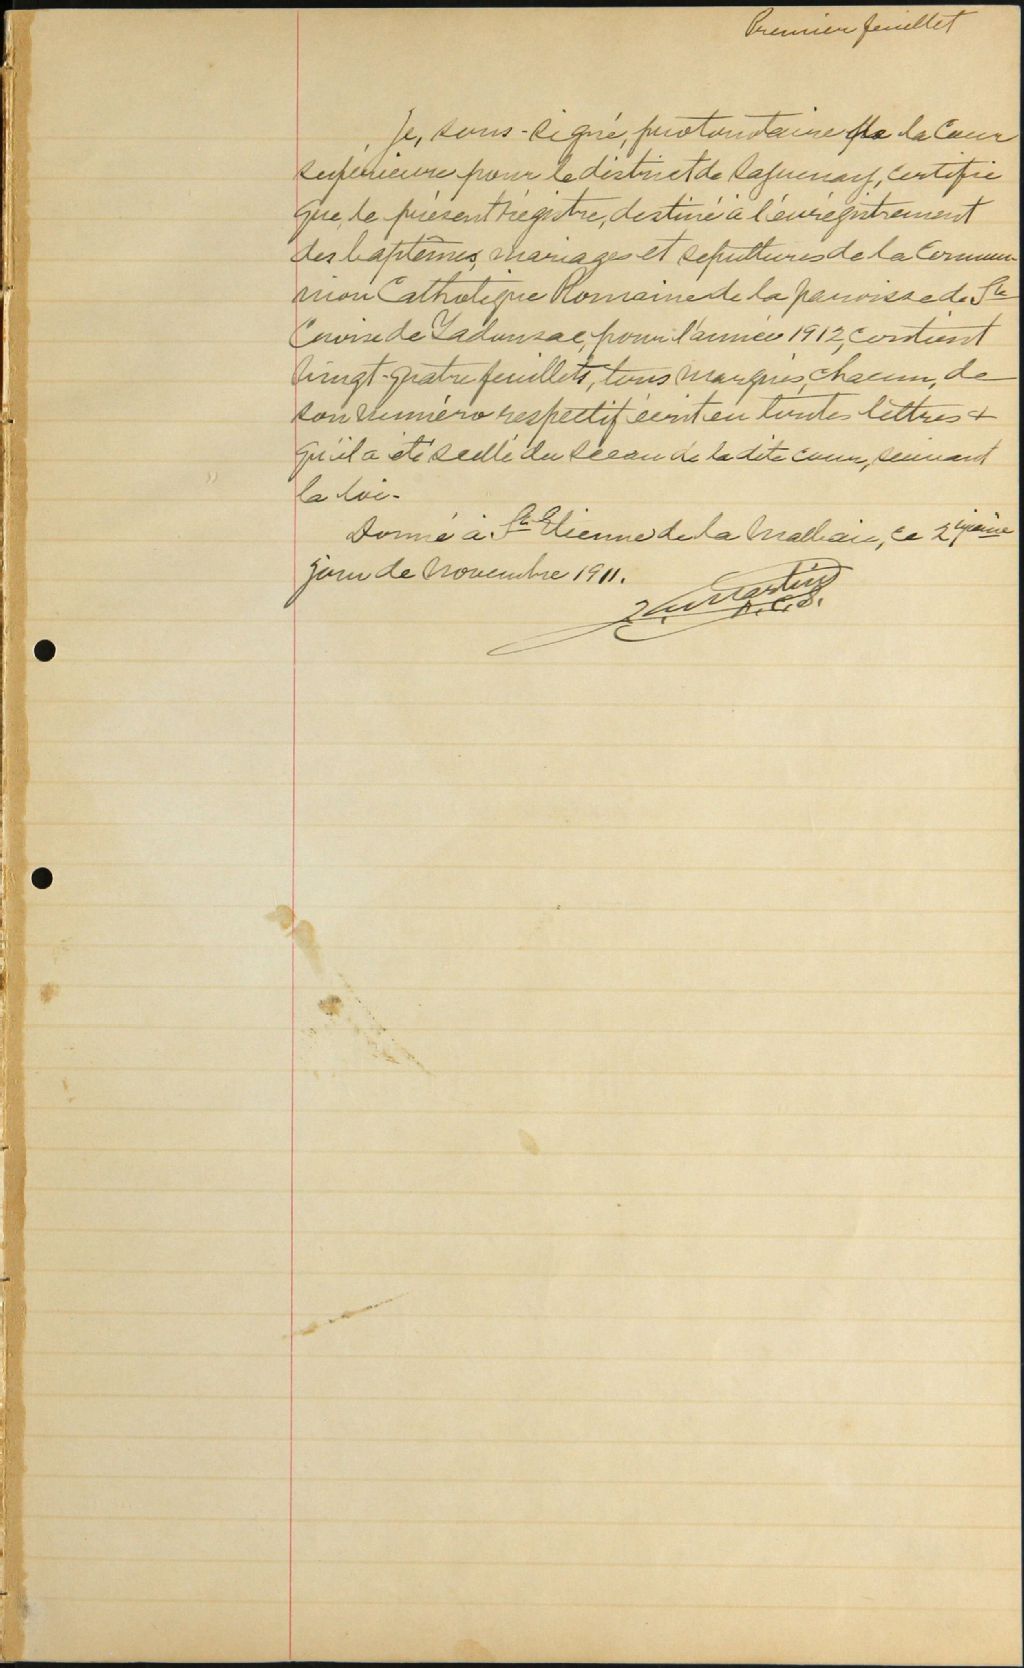 Premier feuillet
Je, sous-signé, protonotaire de la Cour
supérieure pour le district de Saguenay, certifie
que le présent régistre, destiné à l'enrégistrement
des baptêmes, mariages et sépultures de la Commu-
nion Catholique Romaine de la paroisse de Ste
Croix de Tadousac, pour l'année 1912, contient
vingt-quatre feuillets, tous marqués, chacun, de
son numéro respectif écrit en toutes lettres +
qu'il a été scellé du sceau de la dite cour, suivant
la loi.
Donné à St Etienne de la Malbaie, ce 2ième
jour de Novembre 1911.
Martin
P.C.S.